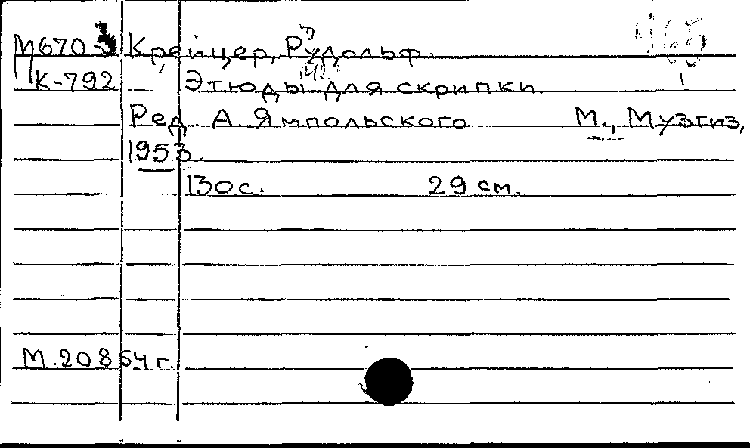 М670-3 Крейцер, Рудольф.
К-792 Этюды для скрипки.
Ред. А. Ямпольского М., Музгиз,
1953.
130с. 29 см.
М.20854г.